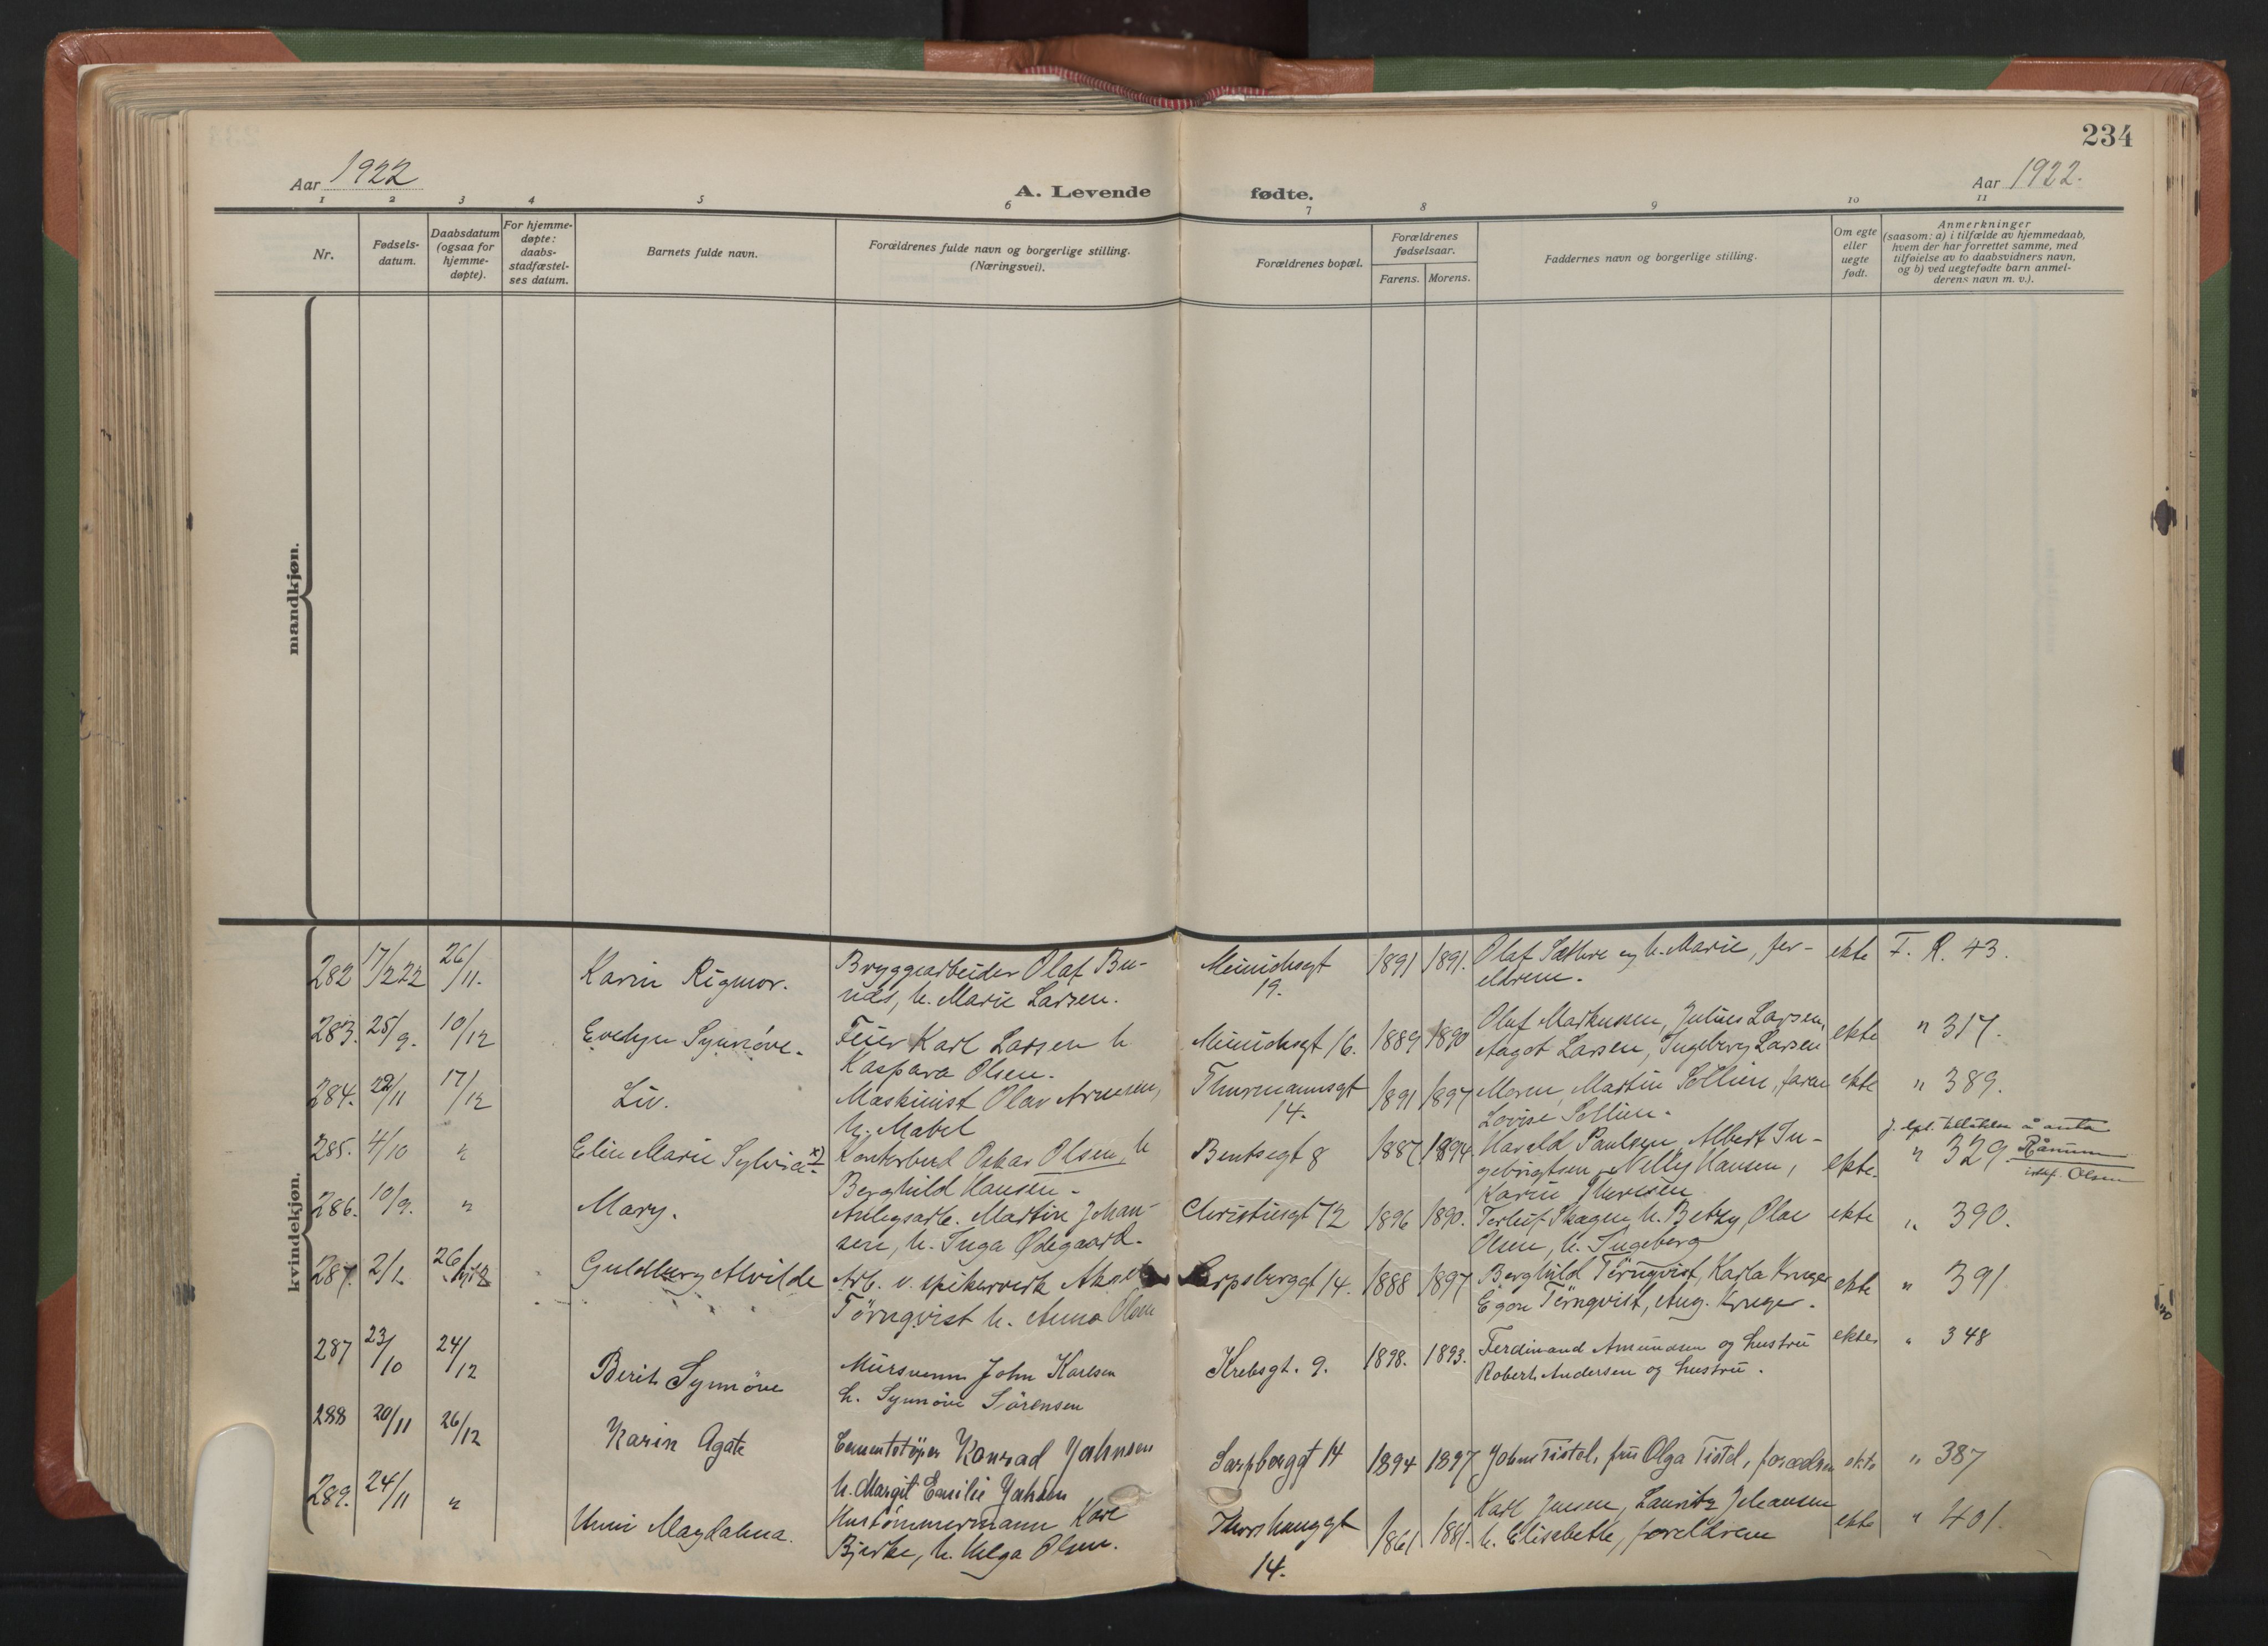 234
Aar 1922
A. Levende fødte.
Aar 1922.
1 2 3 4 5 6 7 8 9 10 11
Nr.
Fødsels-
datum.
Daabsdatum
(ogsaa for
hjemme-
døpte).
For hjemme-
døpte:
daabs-
stadfæstel-
ses datum.
Barnets fulde navn.
Forældrenes fulde navn og borgerlige stilling.
(Næringsvei).
Forældrenes bopæl.
Forældrenes
fødselsaar.
Farens. Morens.
Faddernes navn og borgerlige stilling.
Om egte
eller
uegte
født.
Anmerkninger
(saasom: a) i tilfælde av hjemmedaab,
hvem der har forrettet samme, med
tilføielse av to daabsvidners navn,
og b) ved uegtefødte barn anmel-
derens navn m. v.).
mandkjøn.
kvindekjøn.
282 17/222 26/11. Karin Rigmor. Bryggearbeider Olaf Bu- Minichsgt 1891 1891. Olaf Sæthre og h. Marie, for- ekte F. R. 43.
nås, h. Marie Larsen. 19. eldrene.
283. 25/9. 10/12 Evelyn Synnöve. Feier Karl Larsen h Minichsgt 16. 1889 1890 Olaf Markussen, Julius Larsen, ekte " 317.
Kaspara Olsen. Aagot Larsen, Ingeborg Larsen
284. 22/11 17/12 Liv. Maskinist Olav Arnesen, Thurmannsgt 1891 1897 Moren, Martin Sollien, faren ekte " 389.
h. Mabel 14. Lovise Sollien.
285. 4/10 " Elin Marie Sylvia x) Kontorbud Oskar Olsen, h Bentsegt 8 1887 1894. Harald Paulsen, Albert In- ekte. " 329 Rånum
Berghild Hansen. gebrigtsen, Nelly Hansen, istf. Olsen
Karin Thoresen
286. 10/9. " Mary. Anlegsarb. Martin Johan- Christiesgt 12 1896 1890. Torleif Skagen h. Betzy, Olae ekte " 390.
sen, h. Inga Ødegaard. Olsen, h. Ingeborg
287. 2/1 26/12 Guldborg Alvilde Arb. v. spikerverk Sarpsborggt 14. 1888 1897 Berghild Törnqvist, Karla Kruger ekte " 391
Törnqvist h. Anna Olsen Egon Törnqvist, Aug. Kruger.
287 23/10 24/12 Berit Synnöve Mursvenn John Karlsen Krebsgt. 9. 1898. 1893. Ferdinand Amundsen og hustru ekte " 348
h. Synnöve Sörensen Robert Andersen og hustru.
288 20/11 26/12 Karin Agate Cementstöper Konrad Jahnsen Sarpborggt 14 1894 1897 Johns Tistel, fru Olga Tistel, foreldrene ekte " 387
h. Margit Emilie Jahnsen
289. 24/11 " Unni Magdalena. Hustömmermann Karl Thorshauggt 1861 1881. Karl Jensen, Lauritz Johansen ekte " 401.
Bjerke, h. Helga Olsen. 14. h. Elisabeth, foreldrene